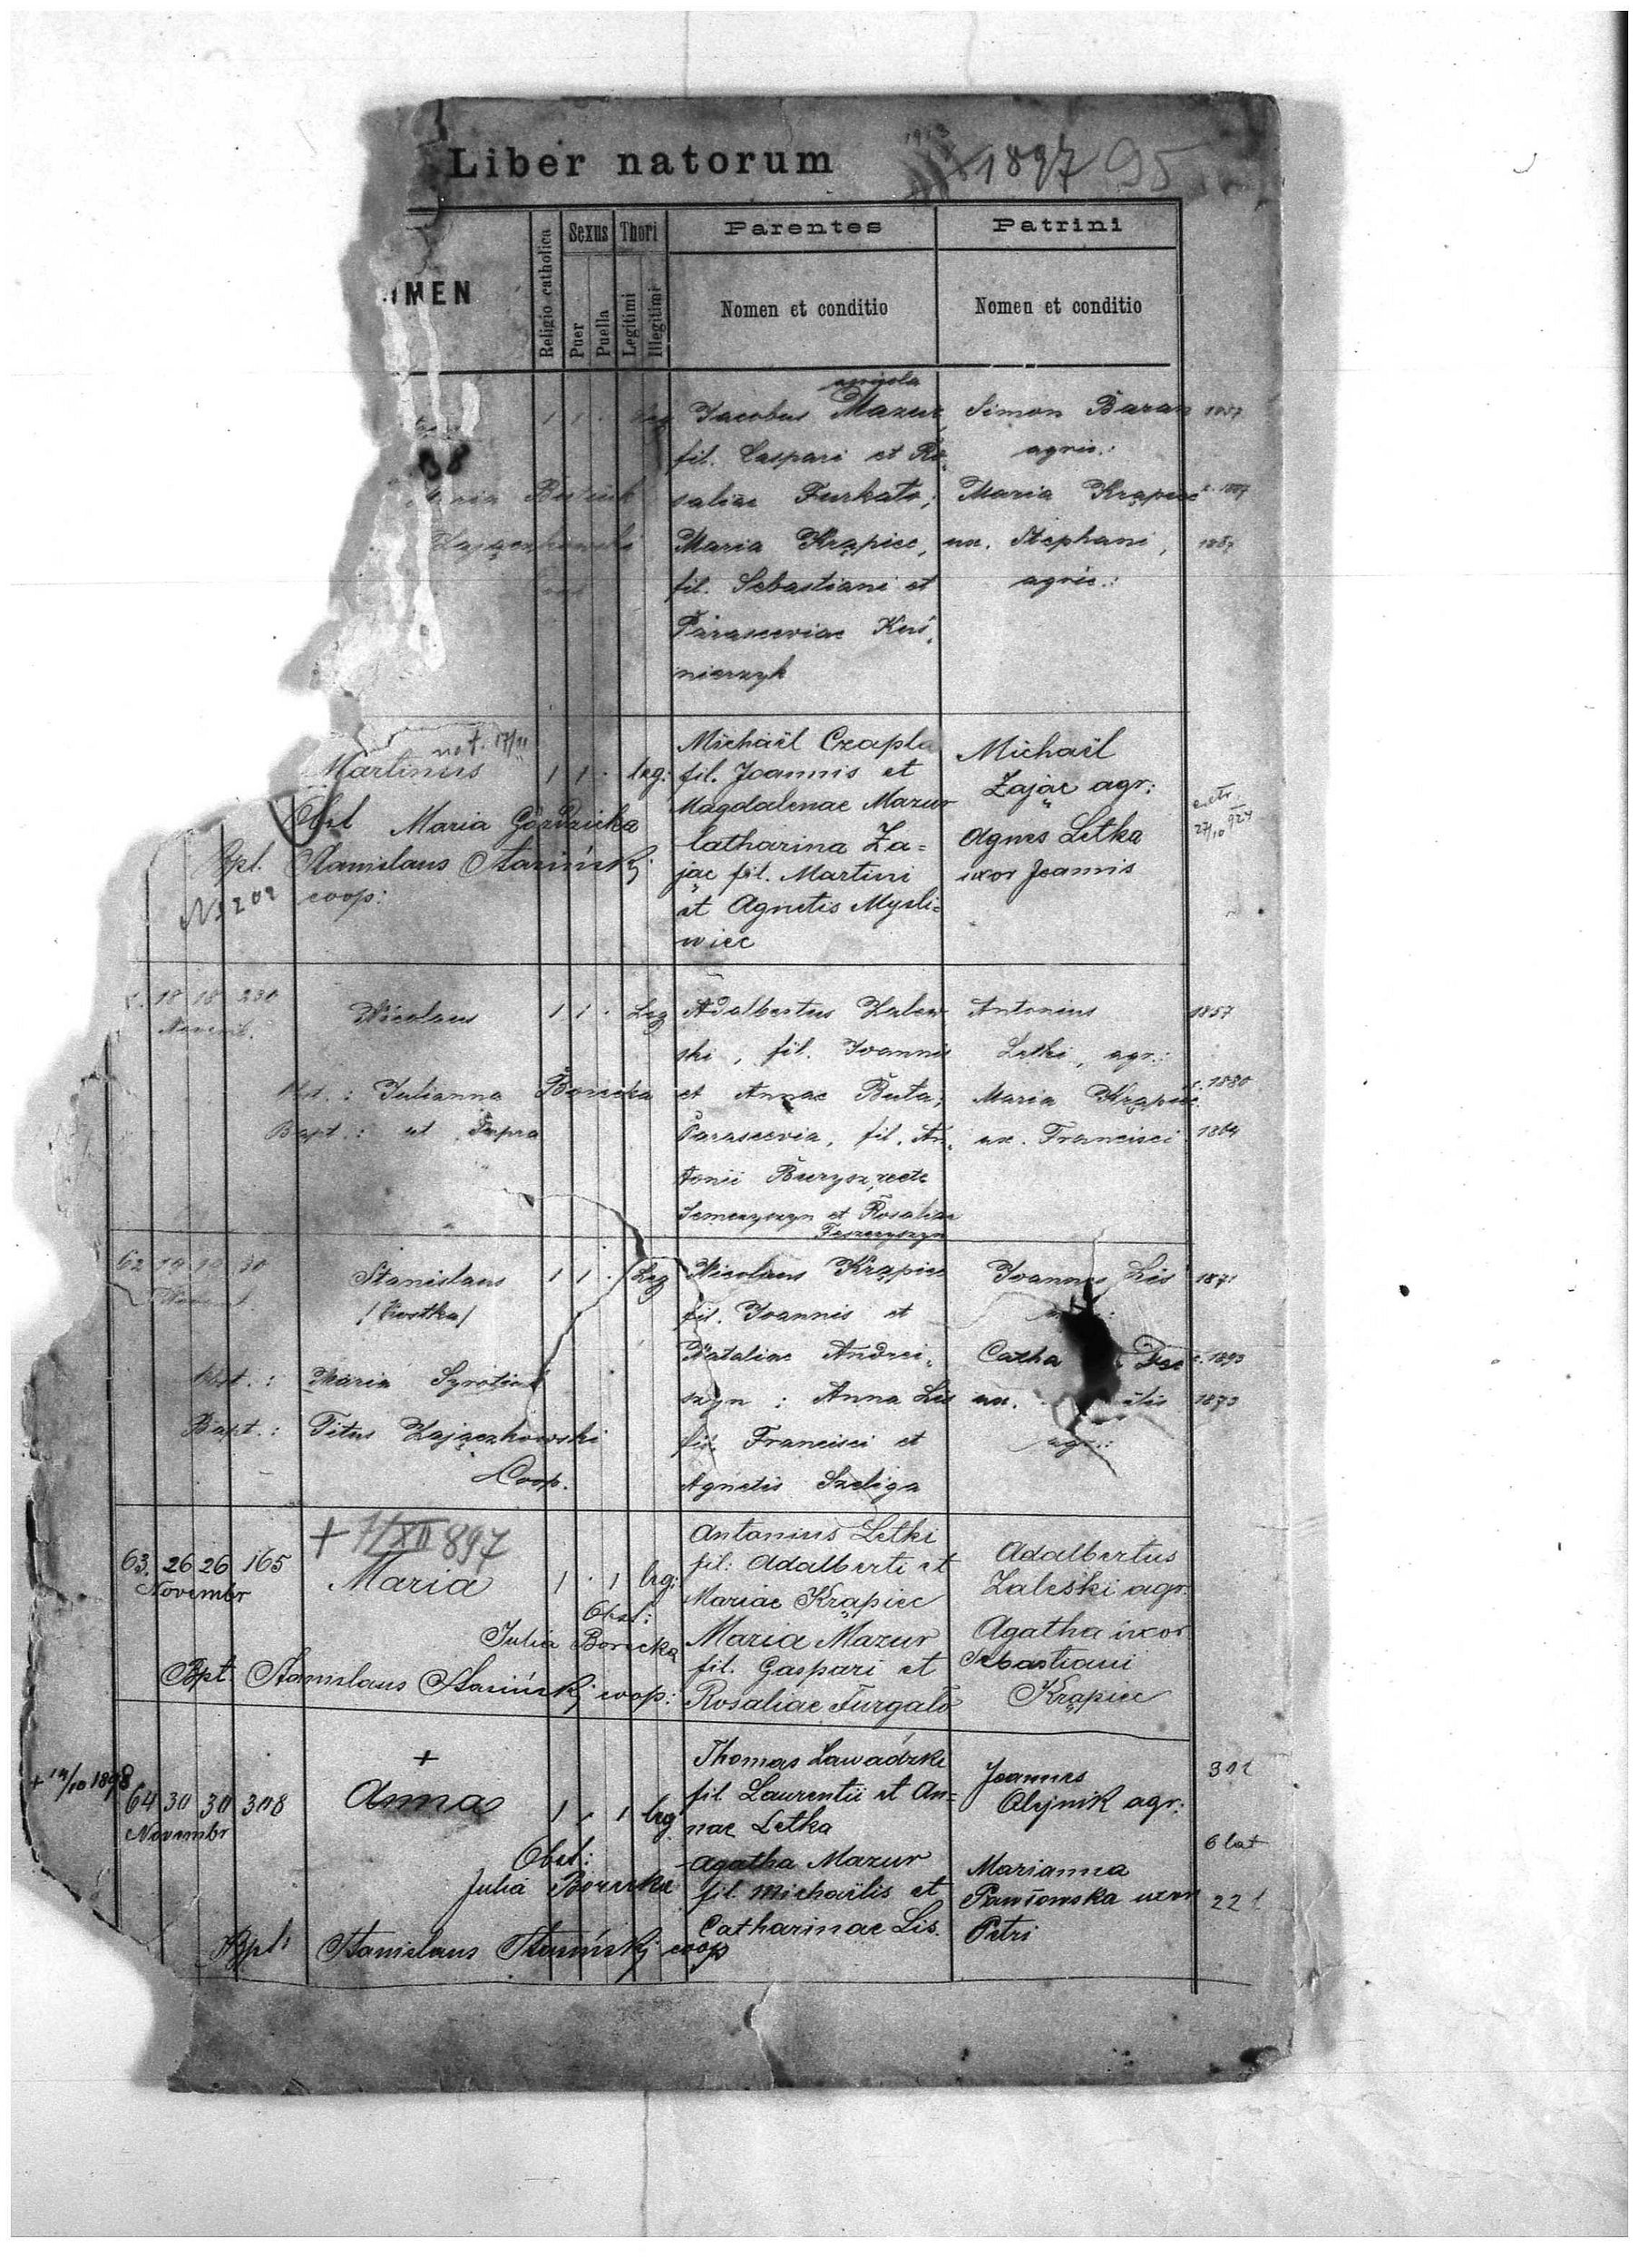 Liber natorum
1897 95
MEN
Religio catholica
Sexus
Puer
Puella
Thori
Legitimi
Illegitimi
Parentes
Nomen et conditio
Patrini
Nomen et conditio
agricola
1 1 · leg Jacobus Mazur, Simon Baran
fil. Caspari et Ro- agric.:
saliae Furkalo; Maria Krąpiec
Zajączkowski Maria Krąpiec, ux. Stephani,
Coop fil. Sebastiani et agric.:
Parasceviae Kuś-
nierzyk
nat. 17/11
Martinus 1 1 · leg:
Obst Maria Góździcka
Bpt. Stanislaus Stasiński
coop:
N 202
Michaël Czapla
fil. Joannis et
Magdalenae Mazur
Catharina Za=
jąc fil. Martini
et Agnetis Myśli=
wiec
Michaël
Zając agr:
Agnes Letka
uxor Joannis
extr.
27/10 924
18 18 230
Novemb.
Nicolaus 1 1 · Leg
Obst.: Julianna Borecka
Bapt.: ut supra
Adalbertus Zalew
ski, fil. Joannis
et Annae Buta;
Parascevia, fil. An-
tonii Burysz, recte
Semczyszyn et Rosaliae
Feszczyszyn
Antonius
Letki, agr.:
Maria Krąpiec
ux. Francisci
1857
c. 1880
1864
62 19 19 30
Novemb.
Stanislaus 1 1 · Leg
/Kostka/
Obst.: Maria Syrotiuk
Bapt.: Titus Zajączkowski
Coop.
Nicolaus Krąpiec
fil. Joannis et
Nataliae Andrei-
szyn: Anna Lis
fil. Francisci et
Agnetis Szeliga
Joannes Lis
Catha
ux.
agr.:
1871
c. 1893
1873
+ 7/XII 897
63. 26 26 165
Novembr
Maria 1 · 1 leg:
Obst:
Julia Borecka
Bpt Stanislaus Stasiński coop:
Antonius Letki
fil: Adalberti et
Mariae Krąpiec
Maria Mazur
fil. Gaspari et
Rosaliae Furgało
Adalbertus
Zaleski agr
Agatha uxor
Sebastiani
Krąpiec
+ 14/10 1898
64 30 30 308
Novembr
+
Anna 1 · 1 leg
Obst:
Julia Borecka
Bpt: Stanislaus Stasiński coop
Thomas Lawadzki
fil Laurentii et An=
nae Letka
Agatha Mazur
fil Michaëlis et
Catharinae Lis.
Joannes
Olejnik agr:
Marianna
Pawłowska uxor
Petri
301
6 lat
221